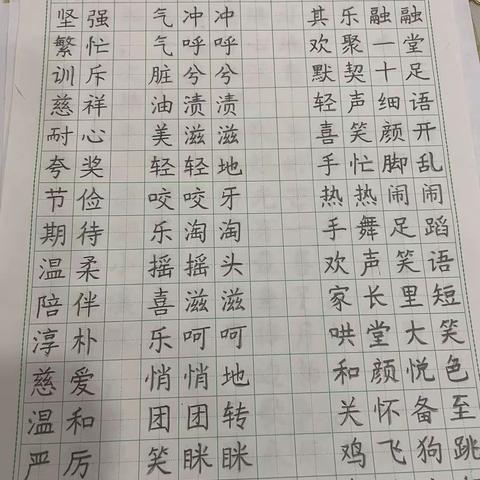 坚强 气冲冲 其乐融融
繁忙 气呼呼 欢聚一堂
训斥 脏兮兮 默契十足
慈祥 油渍渍 轻声细语
耐心 美滋滋 喜笑颜开
夸奖 轻轻地 手忙脚乱
节俭 咬咬牙 热热闹闹
期待 乐淘淘 手舞足蹈
温柔 摇摇头 欢声笑语
陪伴 喜滋滋 家长里短
淳朴 乐呵呵 哄堂大笑
慈爱 悄悄地 和颜悦色
温和 团团转 关怀备至
严厉 笑眯眯 鸡飞狗跳